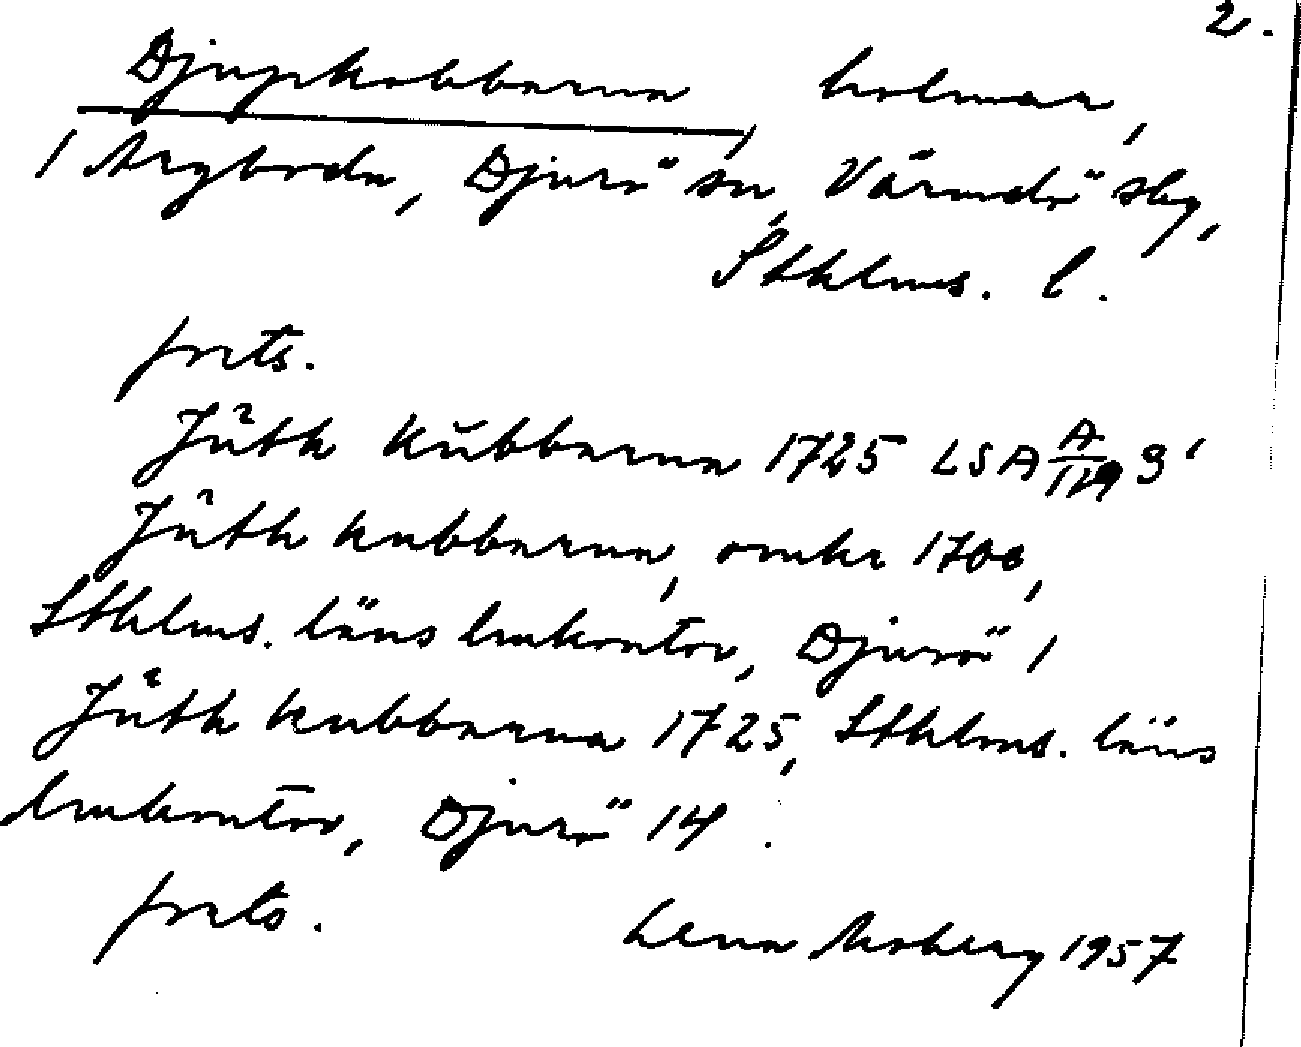 2.
Djupkobbarna, holmar,
/ Aryboda, Djurö sn, Värmdö slg,
Sthlms. l.
forts.
Júth kŭbbarna 1725 LSA A/119 9'
Júth kubbarna, omkr 1700,
Sthlms. läns lmkontor, Djurö 1
Júth kubbarna 1725, Sthlms. läns
lmkontor, Djurö 14.
forts. Lena Moberg 1957